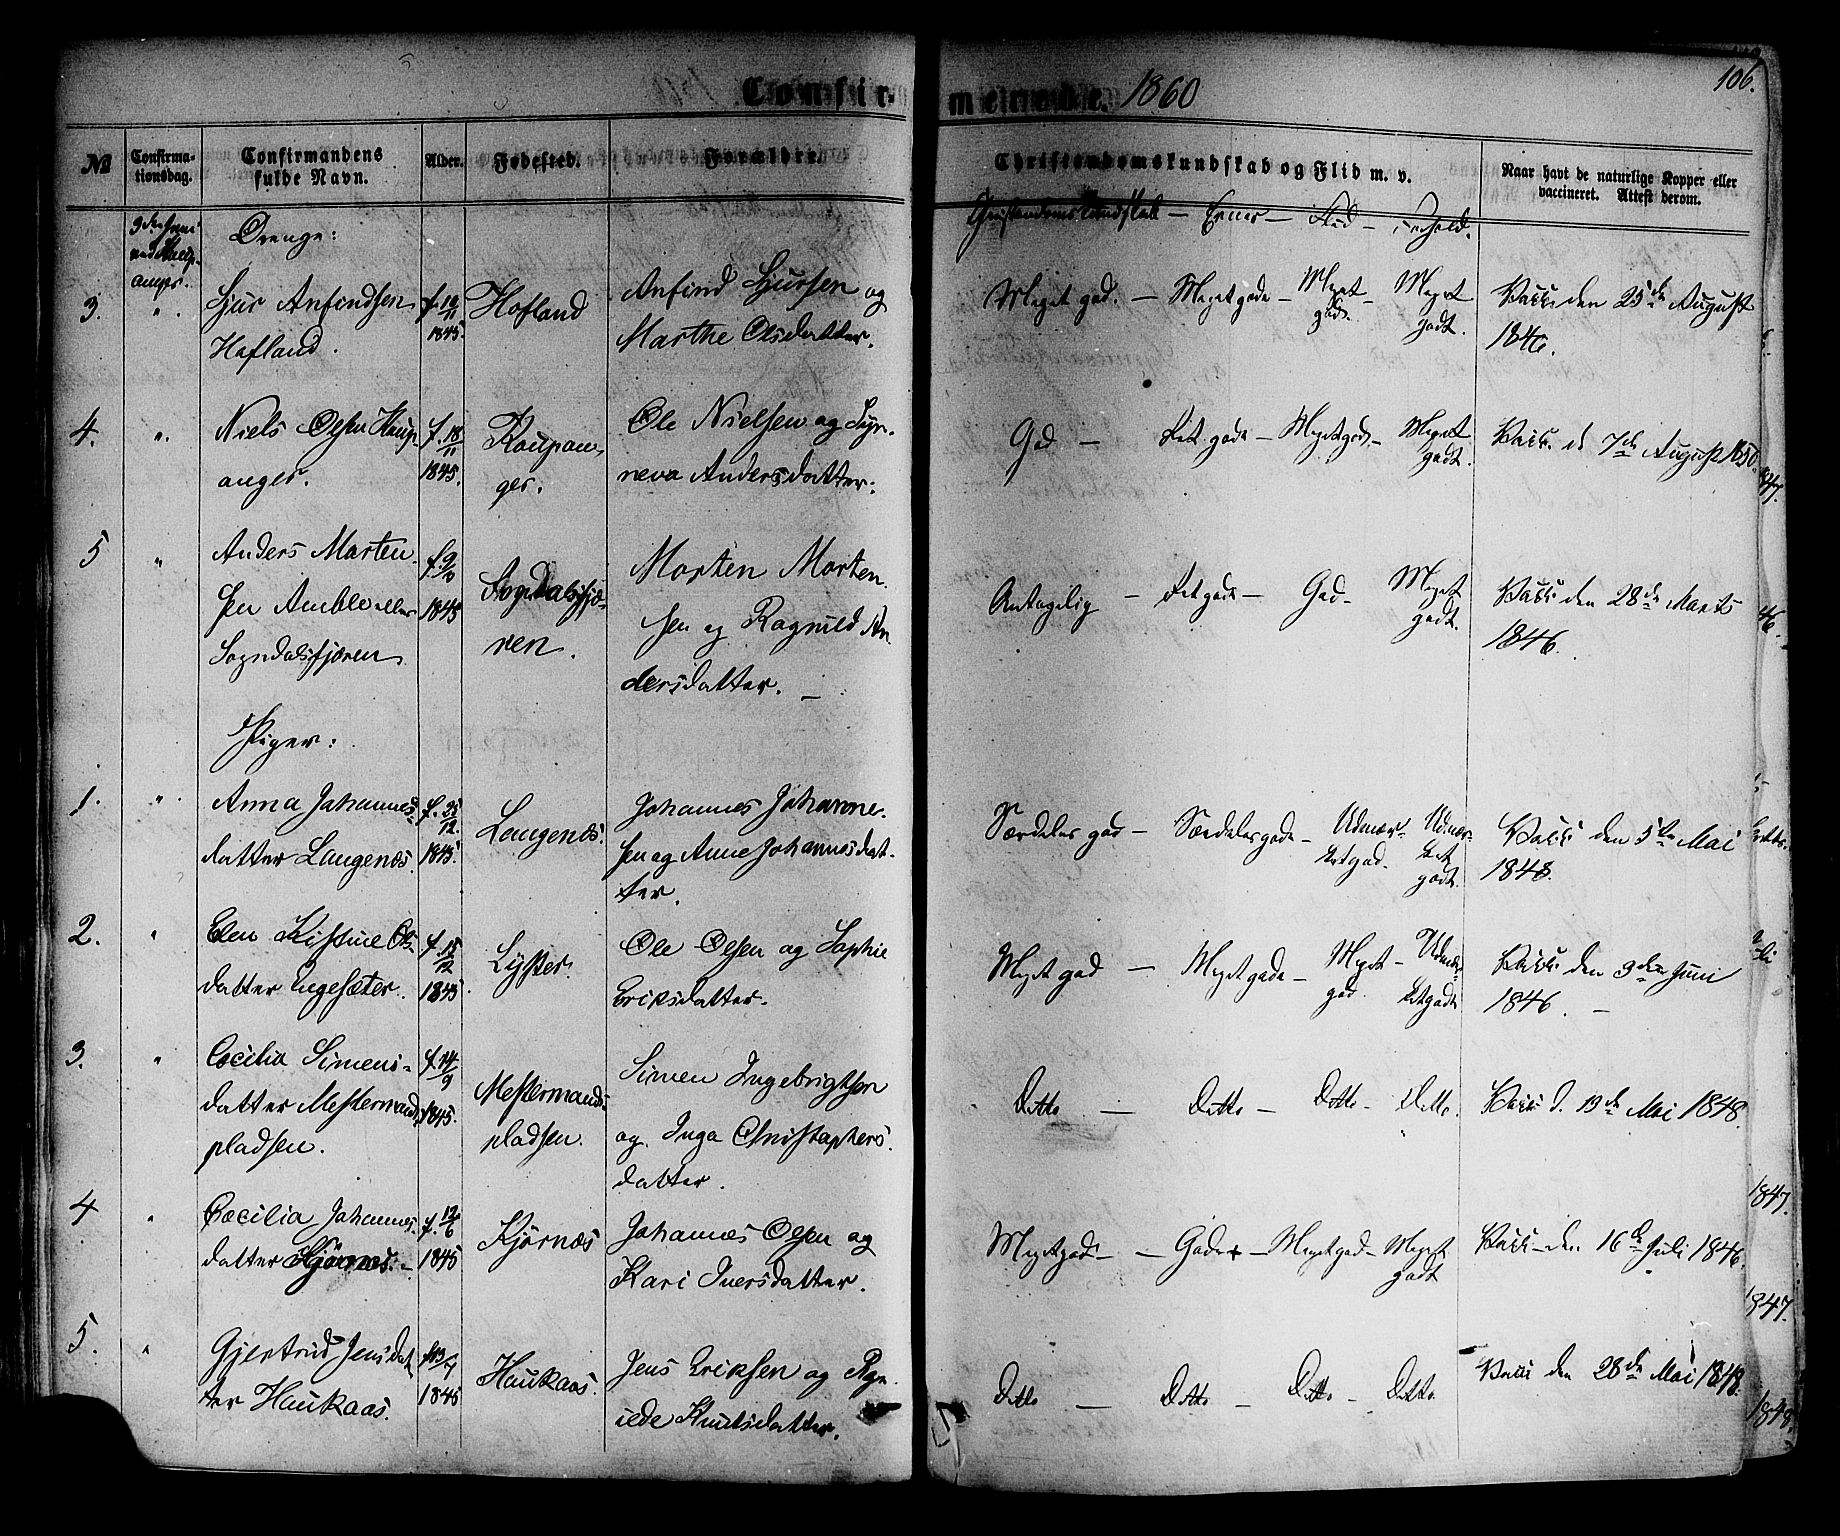 106.
Confirmerede. 1860
No
Confirma-
tionsdag.
Confirmandens
fulde Navn.
Alder.
Fødested.
Forældre.
Christendomskundskab og Flid m. v.
Naar havt de naturlige Kopper eller
vaccineret. Attest derom.
Drenge:
Christendomskundskab — Evner — Flid — Forhold.
3.
".
Sjur Anfindsen
Hofland.
f. 10/11
1845.
Hofland
Anfind Sjursen og
Marthe Olsdatter.
Meget god. — Meget gode — Meget god. — Meget godt.
Vacc. den 25de August
1846.
4.
".
Niels Olsen Kaup-
anger.
f. 18/11
1845.
Kaupan-
ger.
Ole Nielsen og Syn-
neva Andersdatter.
God — Ret gode — Meget god — Meget godt.
Vacc. d. 7de August 1850.
5
"
Anders Morten-
sen Amble eller
Sogndalsfjæren
1845
Sogndalsfjæ-
ren.
Morten Morten-
sen og Ragnild An-
dersdatter. —
Antagelig — Ret gode — God — Meget godt.
Vacc. den 28de Marts
1846.
Piger:
1.
".
Anna Johannes-
datter Laugenæs.
f. 25/12
1845.
Laugenæs.
Johannes Johanne-
sen og Anne Johannesdat-
ter.
Særdeles god — Særdeles gode — Udmær-
ket god. — Udmær-
ket godt.
Vacc. den 5te Mai
1848.
2.
"
Elen Kistine Ols-
datter Engesæter.
f. 15/12
1845
Lyster.
Ole Olsen og Sophie
Eriksdatter.
Meget god — Meget gode — Meget god. — Udmær-
ket godt
Vacc. den 3die Juni
1846. —
3.
"
Cecilia Simens-
datter Mestermands-
pladsen.
f. 14/9
1845.
Mestermands-
pladsen.
Simen Ingebrigtsen
og Inga Christophers-
datter.
Ditto — Ditto — Ditto — Ditto.
Vacc. d. 19de Mai 1848.
4
"
Cecilia Johannes-
datter Kjørnæs. —
f. 12/6
1845
Kjørnæs
Johannes Olsen og
Kari Iversdatter.
Meget god — — Gode — Meget god — Meget godt
Vacc. den 16de Juli 1846.
5.
"
Gjertrud Jensdat-
ter Haukaas.
1845
Haukaas.
Jens Eriksen og Ragn-
ilde Knutsdatter.
Ditto — Ditto — Ditto — Ditto
Vacc. den 28de Mai 1848.
1847.
1847.
1848.